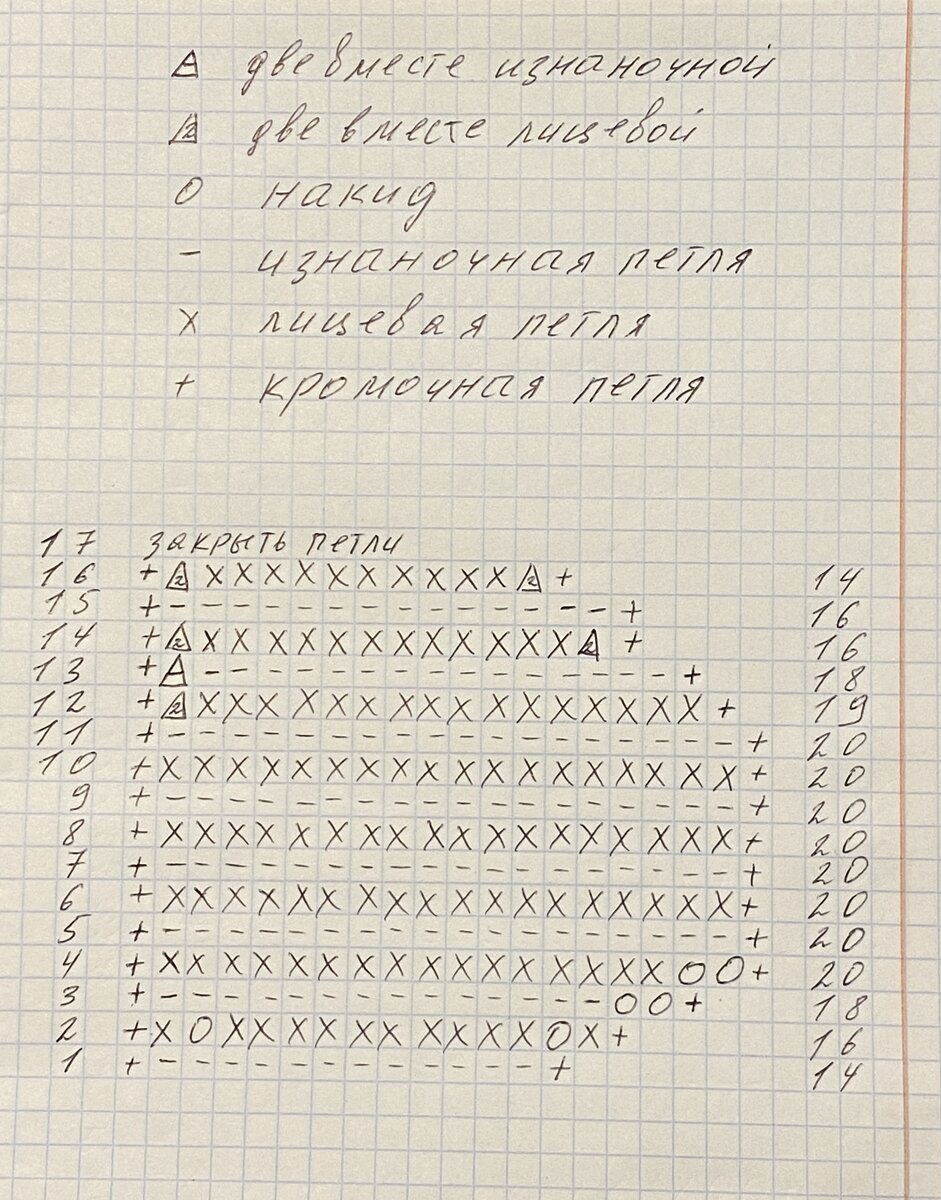 A две вместе изнаночной
2 две вместе лицевой
O накид
- изнаночная петля
X лицевая петля
+ кромочная петля
17 закрыть петли
16 + 2 X X X X X X X X X X 2 + 14
15 + - - - - - - - - - - - - - - + 16
14 + 2 X X X X X X X X X X X X 2 + 16
13 + A - - - - - - - - - - - - - - - + 18
12 + 2 X X X X X X X X X X X X X X X X + 19
11 + - - - - - - - - - - - - - - - - - - + 20
10 + X X X X X X X X X X X X X X X X X X + 20
9 + - - - - - - - - - - - - - - - - - - + 20
8 + X X X X X X X X X X X X X X X X X X + 20
7 + - - - - - - - - - - - - - - - - - - + 20
6 + X X X X X X X X X X X X X X X X X X + 20
5 + - - - - - - - - - - - - - - - - - - + 20
4 + X X X X X X X X X X X X X X X X O O + 20
3 + - - - - - - - - - - - - - - O O + 18
2 + X O X X X X X X X X X X O X + 16
1 + - - - - - - - - - - - - + 14